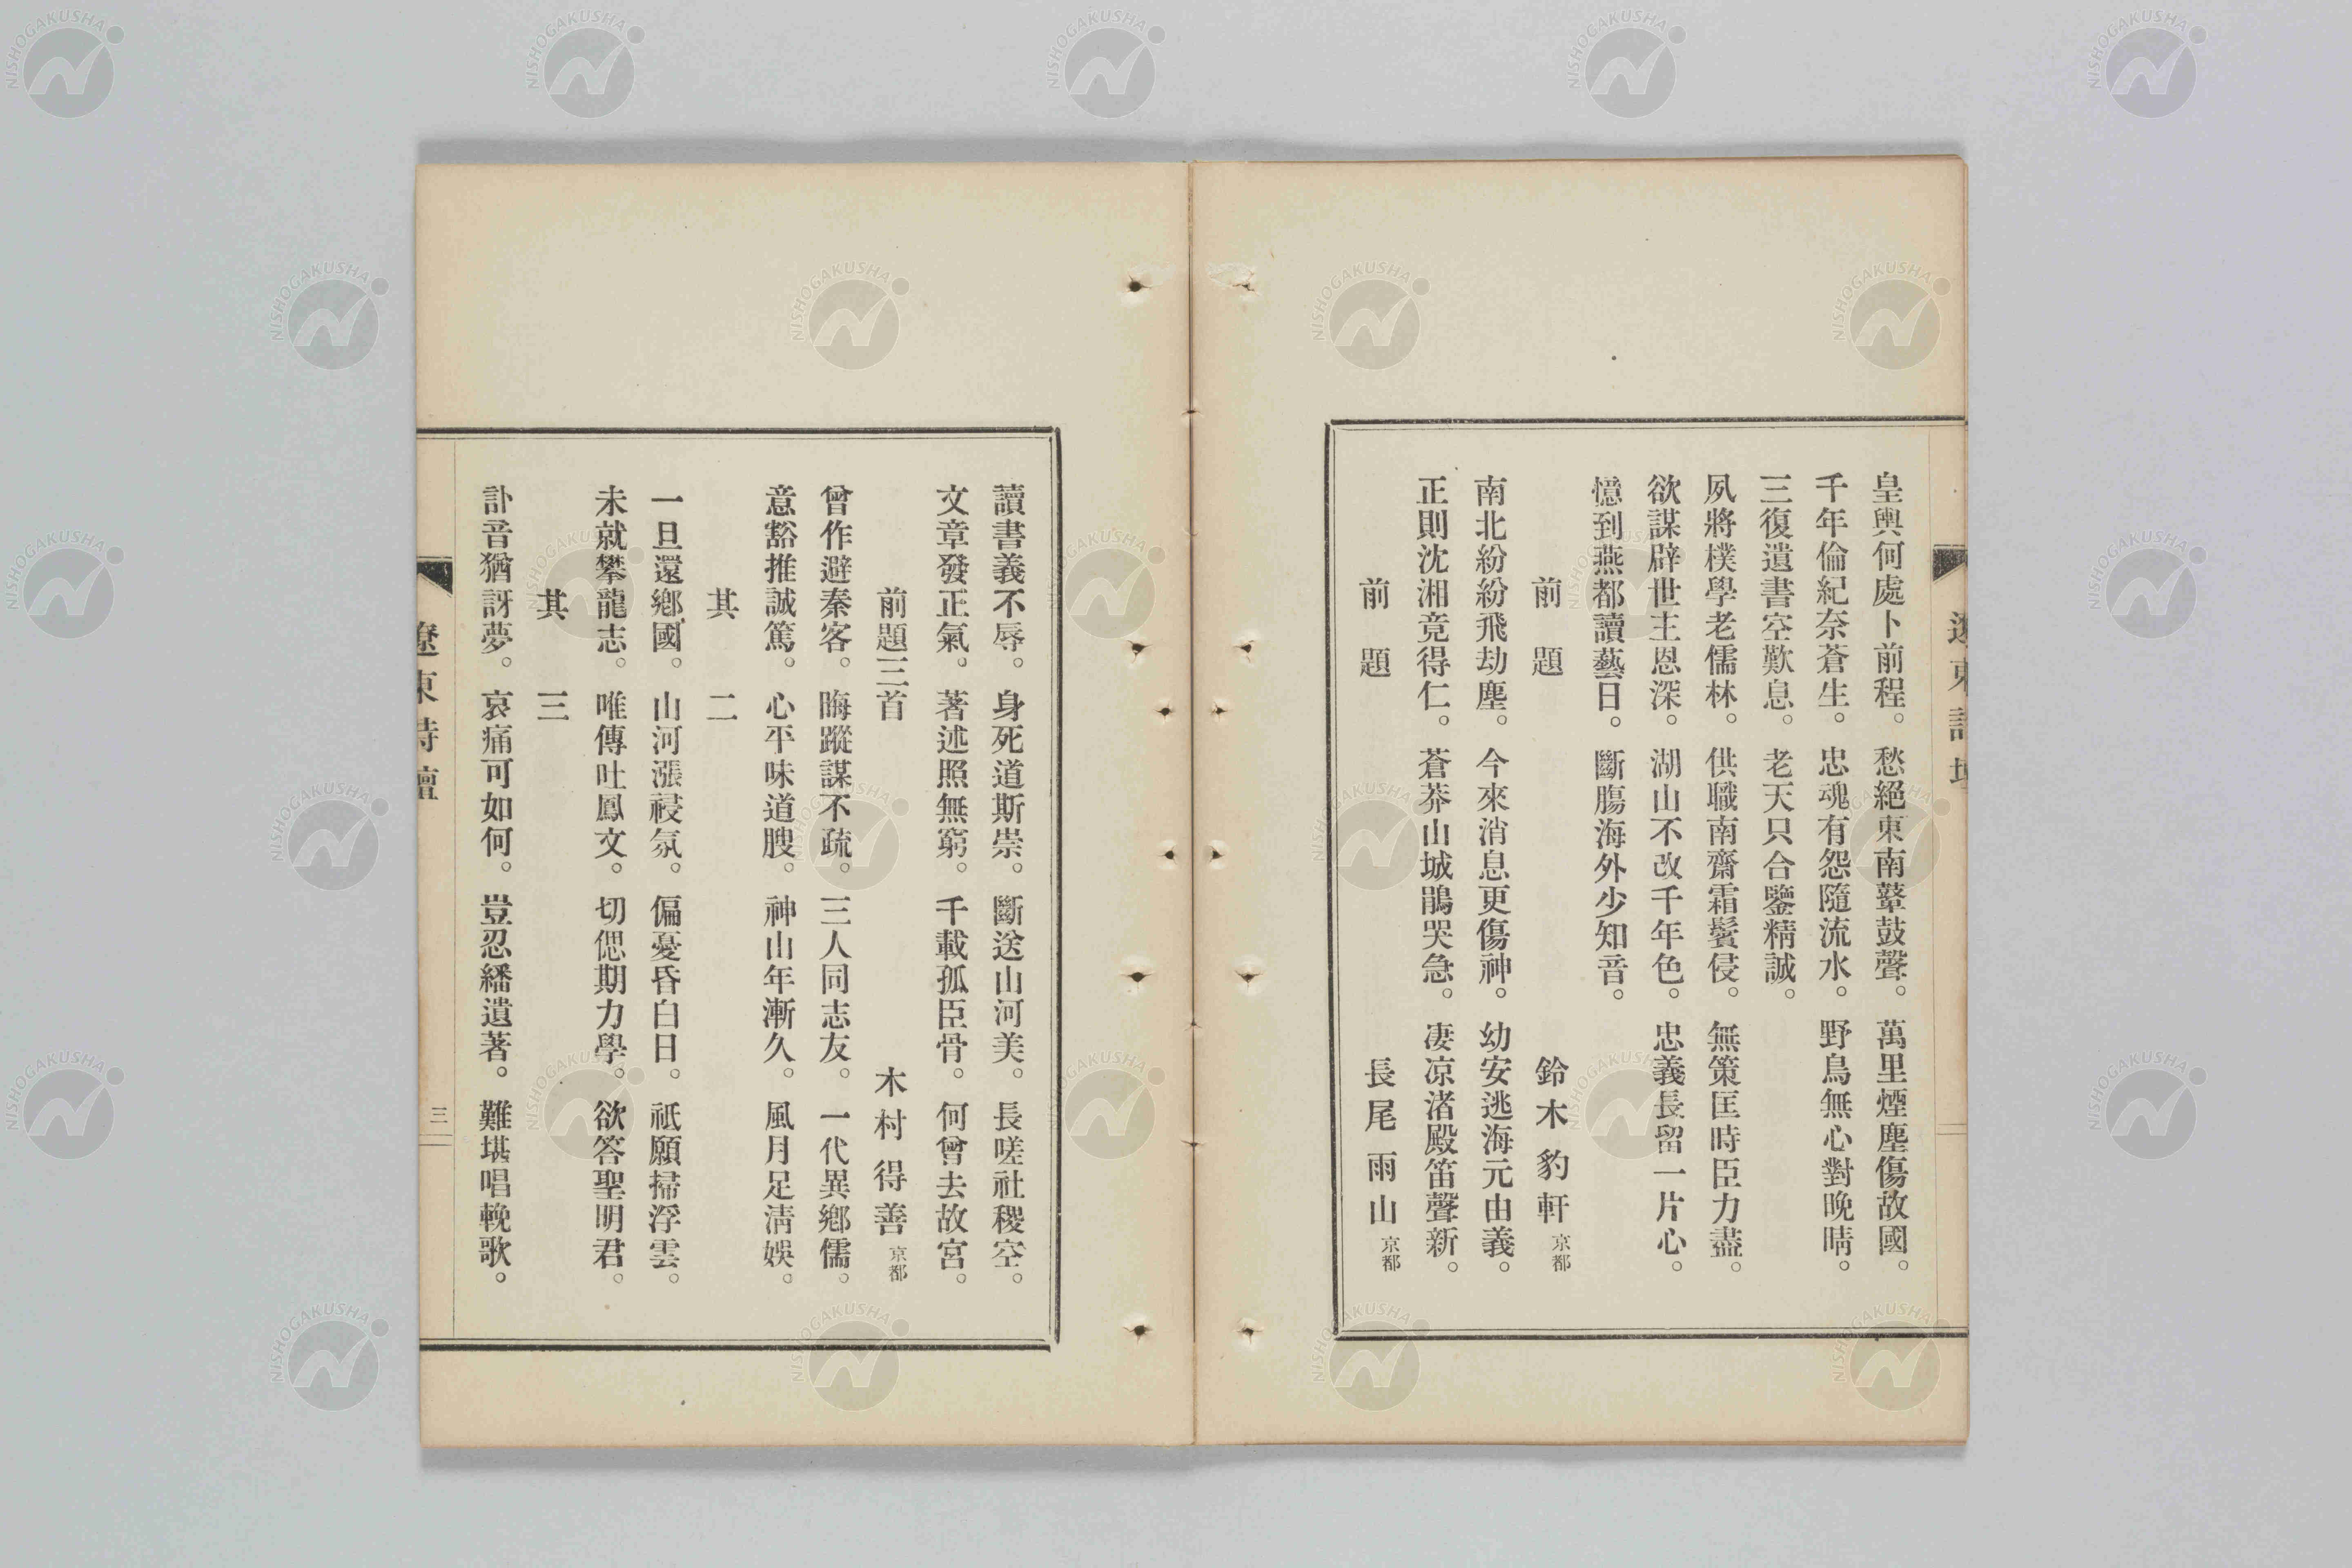 遼東詩壇
皇輿何處卜前程。愁絕東南鼙鼓聲。萬里煙塵傷故國。
千年倫紀奈蒼生。忠魂有怨隨流水。野鳥無心對晚晴。
三復遺書空歎息。老天只合鑒精誠。
夙將樸學老儒林。供職南齋霜鬢侵。無策匡時臣力盡。
欲謀辟世主恩深。湖山不改千年色。忠義長留一片心。
憶到燕都讀藝日。斷腸海外少知音。
前題 鈴木豹軒 京都
南北紛紛飛劫塵。今來消息更傷神。幼安逃海元由義。
正則沈湘竟得仁。蒼莽山城鵑哭急。凄凉渚殿笛聲新。
前題 長尾雨山 京都
讀書義不辱。身死道斯崇。斷送山河美。長嗟社稷空。
文章發正氣。著述照無窮。千載孤臣骨。何曾去故宮。
前題三首 木村得善 京都
曾作避秦客。晦蹤謀不疏。三人同志友。一代異鄉儒。
意豁推誠篤。心平味道腴。神山年漸久。風月足淸娛。
其二
一旦還鄉國。山河漲祲氛。偏憂昏白日。祇願掃浮雲。
未就攀龍志。唯傳吐鳳文。切偲期力學。欲答聖明君。
其三
訃音猶訝夢。哀痛可如何。豈忍繙遺著。難堪唱輓歌。
遼東詩壇
三
NISHOGAKUSHA